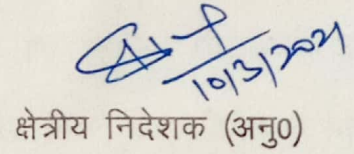 10/3/2021
क्षेत्रीय निदेशक (अनु0)